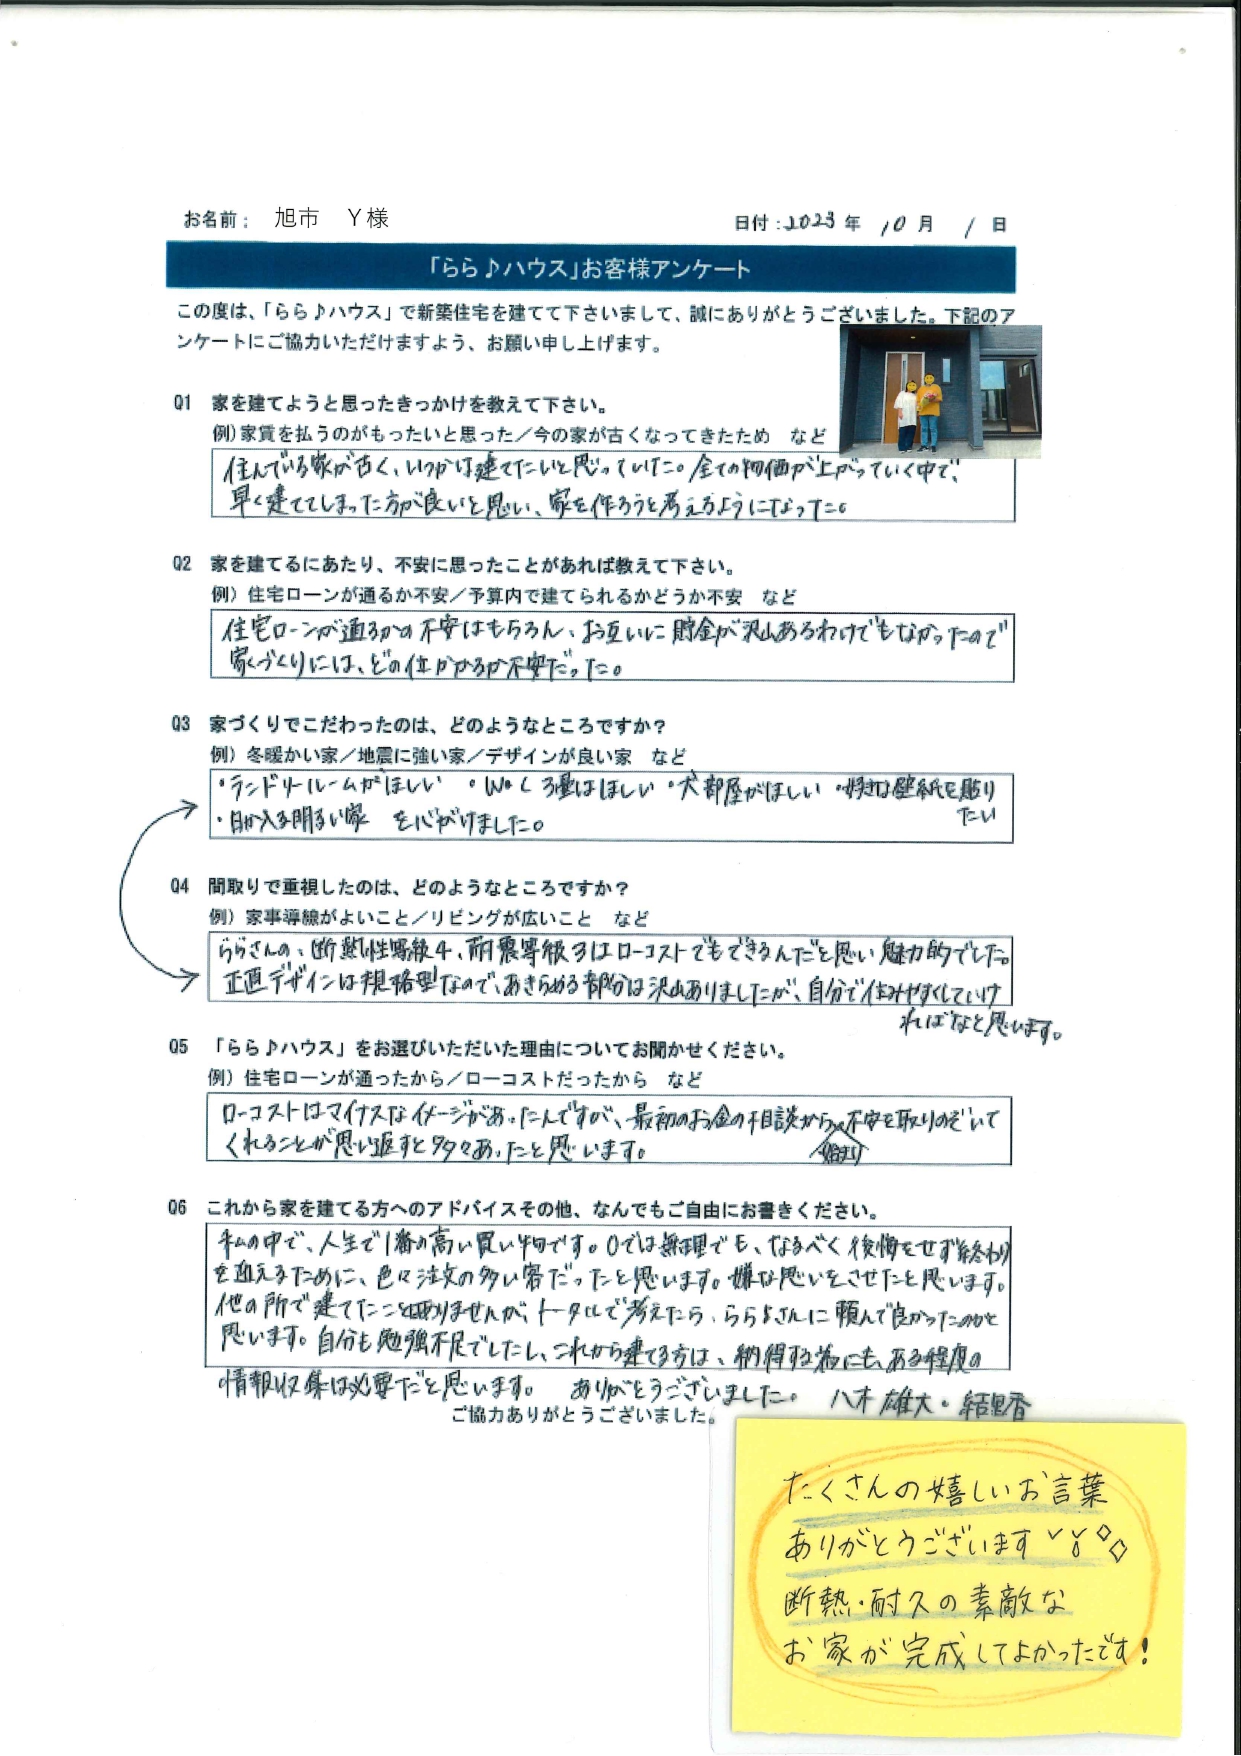 お名前： 旭市　Y様
日付：2023年 10月 1日
「らら♪ハウス」お客様アンケート
この度は、「らら♪ハウス」で新築住宅を建てて下さいまして、誠にありがとうございました。下記のア
ンケートにご協力いただけますよう、お願い申し上げます。
Q1 家を建てようと思ったきっかけを教えて下さい。
例）家賃を払うのがもったいと思った／今の家が古くなってきたため　など
住んでいる家が古く、いつかは建てたいと思っていた。全ての物価が上がっていく中で、
早く建ててしまった方が良いと思い、家を作ろうと考えるようになった。
Q2 家を建てるにあたり、不安に思ったことがあれば教えて下さい。
例）住宅ローンが通るか不安／予算内で建てられるかどうか不安　など
住宅ローンが通るかの不安はもちろん、お互いに貯金が沢山あるわけでもなかったので
家づくりには、どの位かかるか不安だった。
Q3 家づくりでこだわったのは、どのようなところですか？
例）冬暖かい家／地震に強い家／デザインが良い家　など
・ランドリールームがほしい ・WIC 3畳はほしい ・犬部屋がほしい ・好きな壁紙を貼り
たい
・日が入る明るい家　を心がけました。
Q4 間取りで重視したのは、どのようなところですか？
例）家事導線がよいこと／リビングが広いこと　など
ららさんの、断熱性等級4、耐震等級3はローコストでもできるんだと思い魅力的でした。
正直デザインは規格型なので、あきらめる部分は沢山ありましたが、自分で住みやすくしていけ
ればなと思います。
Q5 「らら♪ハウス」をお選びいただいた理由についてお聞かせください。
例）住宅ローンが通ったから／ローコストだったから　など
ローコストはマイナスなイメージがあったんですが、最初のお金の相談から始まり、不安を取りのぞいて
くれることが思い返すと多々あったと思います。
Q6 これから家を建てる方へのアドバイスその他、なんでもご自由にお書きください。
私の中で、人生で1番の高い買い物です。0では無理でも、なるべく後悔をせず終わり
を迎えるために、色々注文の多い客だったと思います。嫌な思いをさせたと思います。
他の所で建てたことはありませんが、トータルで考えたら、ららさんに頼んで良かったのかと
思います。自分も勉強不足でしたし、これから建てる方は、納得する為にも、ある程度の
情報収集は必要だと思います。　ありがとうございました。　八木 雄大・結里香
ご協力ありがとうございました。
たくさんの嬉しいお言葉
ありがとうございます
断熱・耐久の素敵な
お家が完成してよかったです！